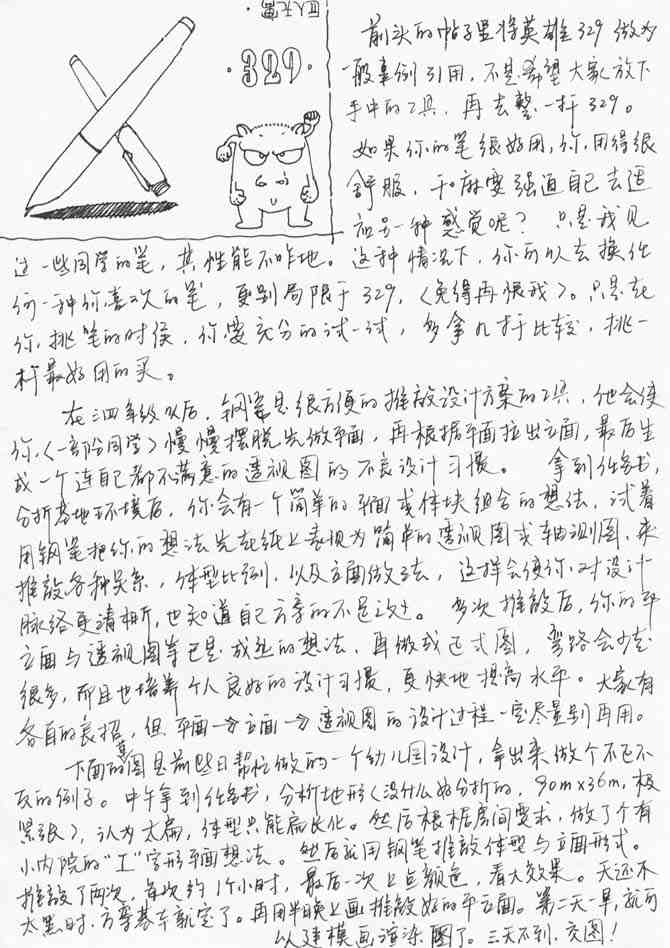 巨人无霸
·329·
前头的帖子里将英雄329做为
一般案例引用，不是希望大家放下
手中的工具，再去整一杆329。
如果你的笔很好用，你用得很
舒服，干麻要强迫自己去适
应另一种感觉呢？只是我见
过一些同学的笔，其性能不咋地。这种情况下，你可以去换任
何一种你喜欢的笔，更别局限于329，〈免得再恨我〉。只是在
你挑笔的时侯，你要充分的试一试，多拿几杆比较，挑一
杆最好用的买。
在三四年级以后，钢笔是很方便的推敲设计方案的工具，他会使
你〈一部份同学〉慢慢摆脱先做平面，再根据平面拉出立面，最后生
成一个连自己都不满意的透视图的不良设计习惯。拿到任务书，
分析基地环境后，你会有一个简单的平面或体块组合的想法，试着
用钢笔把你的想法先在纸上表现为简单的透视图或轴测图，来
推敲各种关系，体型比例，以及立面做法，这样会使你对设计
脉络更清晰，也知道自己方案的不足之处。多次推敲后，你的平
立面与透视图等已是成熟的想法，再做成正式图，弯路会少走
很多，而且也培养个人良好的设计习惯，更快地提高水平。大家有
各自的良招，但平面→立面→透视图的设计过程一定尽量别再用。
下面的幕图是前些日帮忙做的一个幼儿园设计，拿出来做个不已不
友的例子。中午拿到任务书，分析地形〈没什么好分析的，90m×36m，极
紧张〉，认为太扁，体型只能扁长化。然后根据房间要求，做了个有
小内院的"工"字形平面想法。然后就用钢笔推敲体型与立面形式。
推敲了两次，每次约1个小时，最后一次上点颜色，看大效果。天还不
太黑时，方案基本就定了。再用半晚上画推敲好的平立面。第二天一早，就可
以建模画渲染图了。三天不到，交图！